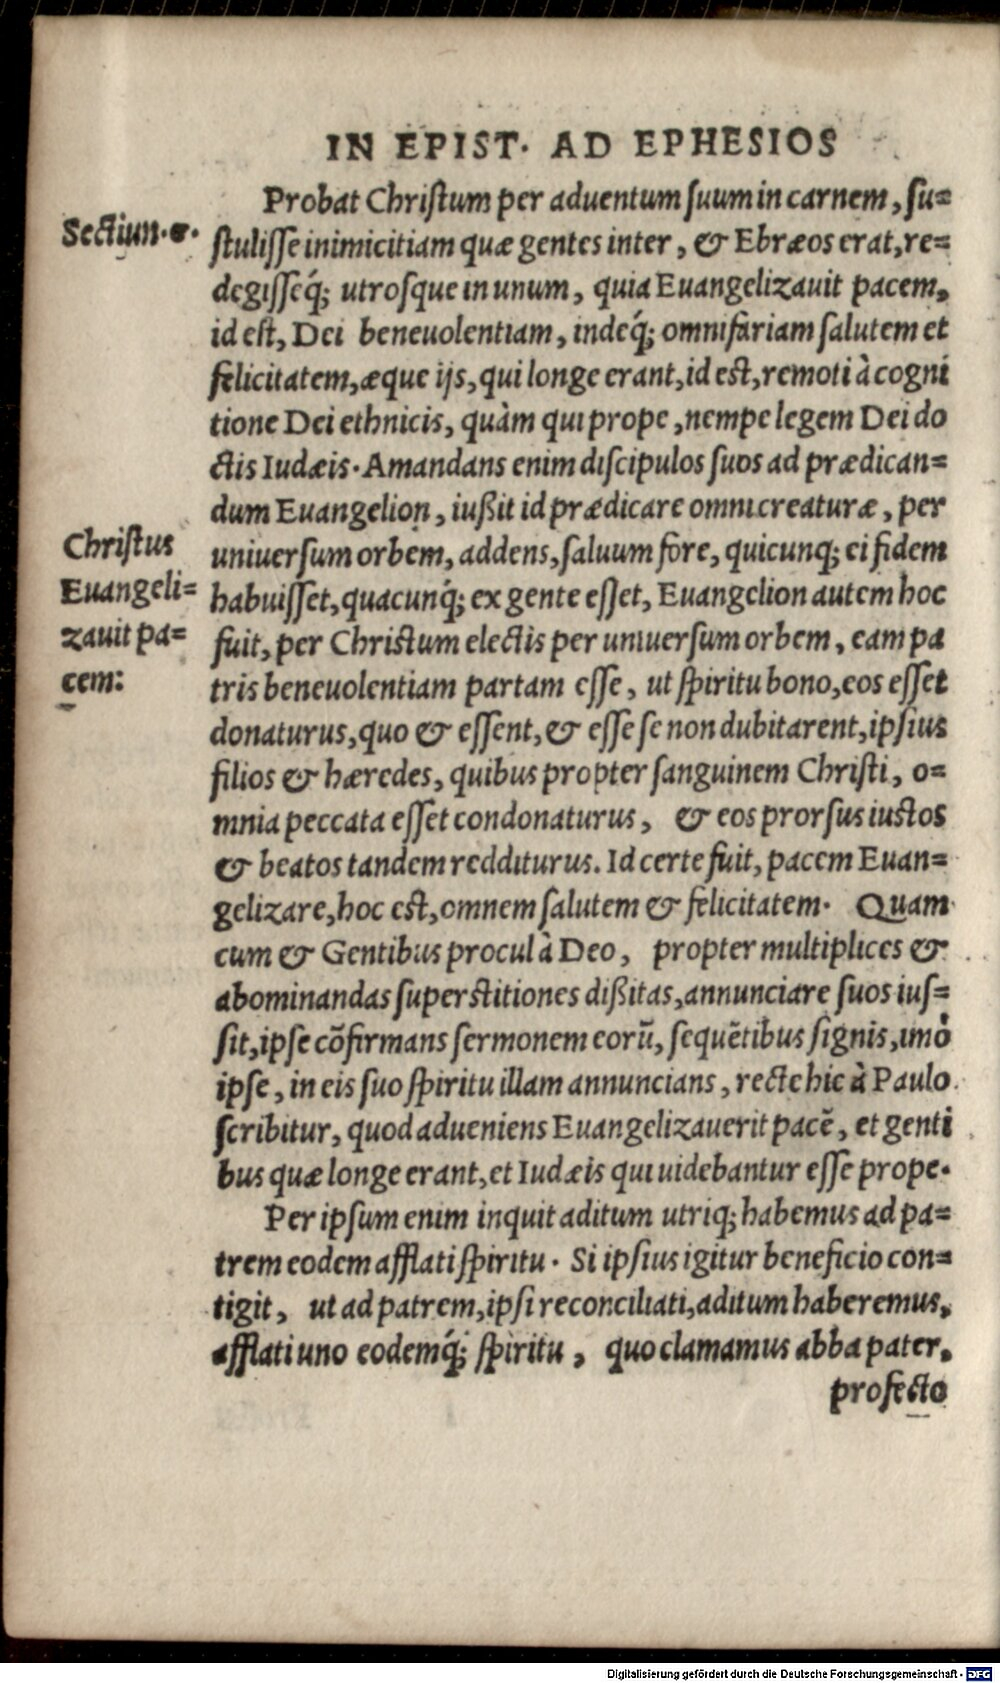 IN EPIST. AD EPHESIOS
Probat Christum per aduentum suum in carnem, su=
Sectiun.
stulisse inimicitiam quæ gentes inter, & Ebræos erat, re=
degisseq́; utrosque in unum, quia Euangelizauit pacem,
id est, Dei beneuolentiam, indeq́; omnifariam salutem et
felicitatem, æque ijs, qui longe erant, id est, remoti à cogni
tione Dei ethnicis, quàm qui prope, nempe legem Dei do
ctis Iudæis. Amandans enim discipulos suos ad prædican=
dum Euangelion, iußit id prædicare omni creaturæ, per
Christus
Euangeli=
zauit pa=
cem:
uniuersum orbem, addens, saluum fore, quicunq; ei fidem
habuisset, quacunq́; ex gente esset, Euangelion autem hoc
fuit, per Christum electis per uniuersum orbem, eam pa
tris beneuolentiam partam esse, ut spiritu bono, eos esset
donaturus, quo & essent, & esse se non dubitarent, ipsius
filios & hæredes, quibus propter sanguinem Christi, o=
mnia peccata esset condonaturus, & eos prorsus iustos
& beatos tandem redditurus. Id certe fuit, pacem Euan=
gelizare, hoc est, omnem salutem & felicitatem. Quam
cum & Gentibus procul à Deo, propter multiplices &
abominandas superstitiones dißitas, annunciare suos ius=
sit, ipse cõfirmans sermonem eorũ, sequẽtibus signis, imò
ipse, in eis suo spiritu illam annuncians, recte hic à Paulo
scribitur, quod adueniens Euangelizauerit pacẽ, et genti
bus quæ longe erant, et Iudæis qui uidebantur esse prope.
Per ipsum enim inquit aditum utriq; habemus ad pa=
trem eodem afflati spiritu. Si ipsius igitur beneficio con=
tigit, ut ad patrem, ipsi reconciliati, aditum haberemus,
afflati uno eodemq́; spiritu, quo clamamus abba pater,
profecto
Digitalisierung gefördert durch die Deutsche Forschungsgemeinschaft - DFG